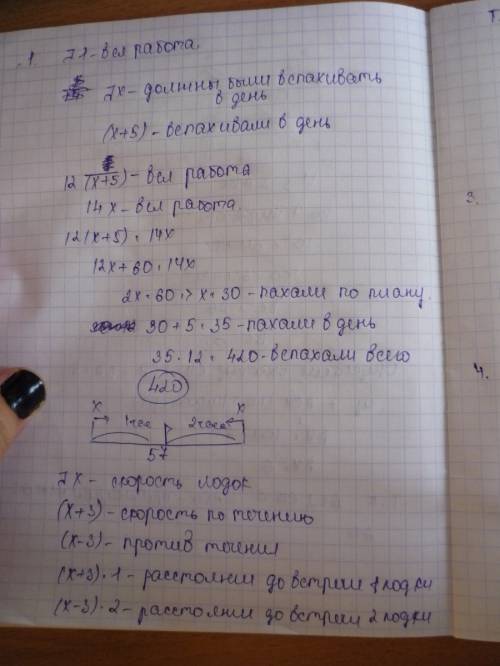 1 I 1 - вся работа
I x - должны были вспахивать
в день
(x+5) - вспахивали в день
12 (x+5) - вся работа
14x - вся работа.
12(x+5) = 14x
12x + 60 = 14x
2x = 60 => x = 30 - пахали по плану.
30 + 5 = 35 - пахали в день
35 · 12 = 420 - вспахали всего
420
x 1 час 2 часа x
57
I x - скорость лодок
(x+3) - скорость по течению
(x-3) - против течения
(x+3) · 1 - расстояние до встречи 1 лодки
(x-3) · 2 - расстояние до встречи 2 лодки
3.
4.